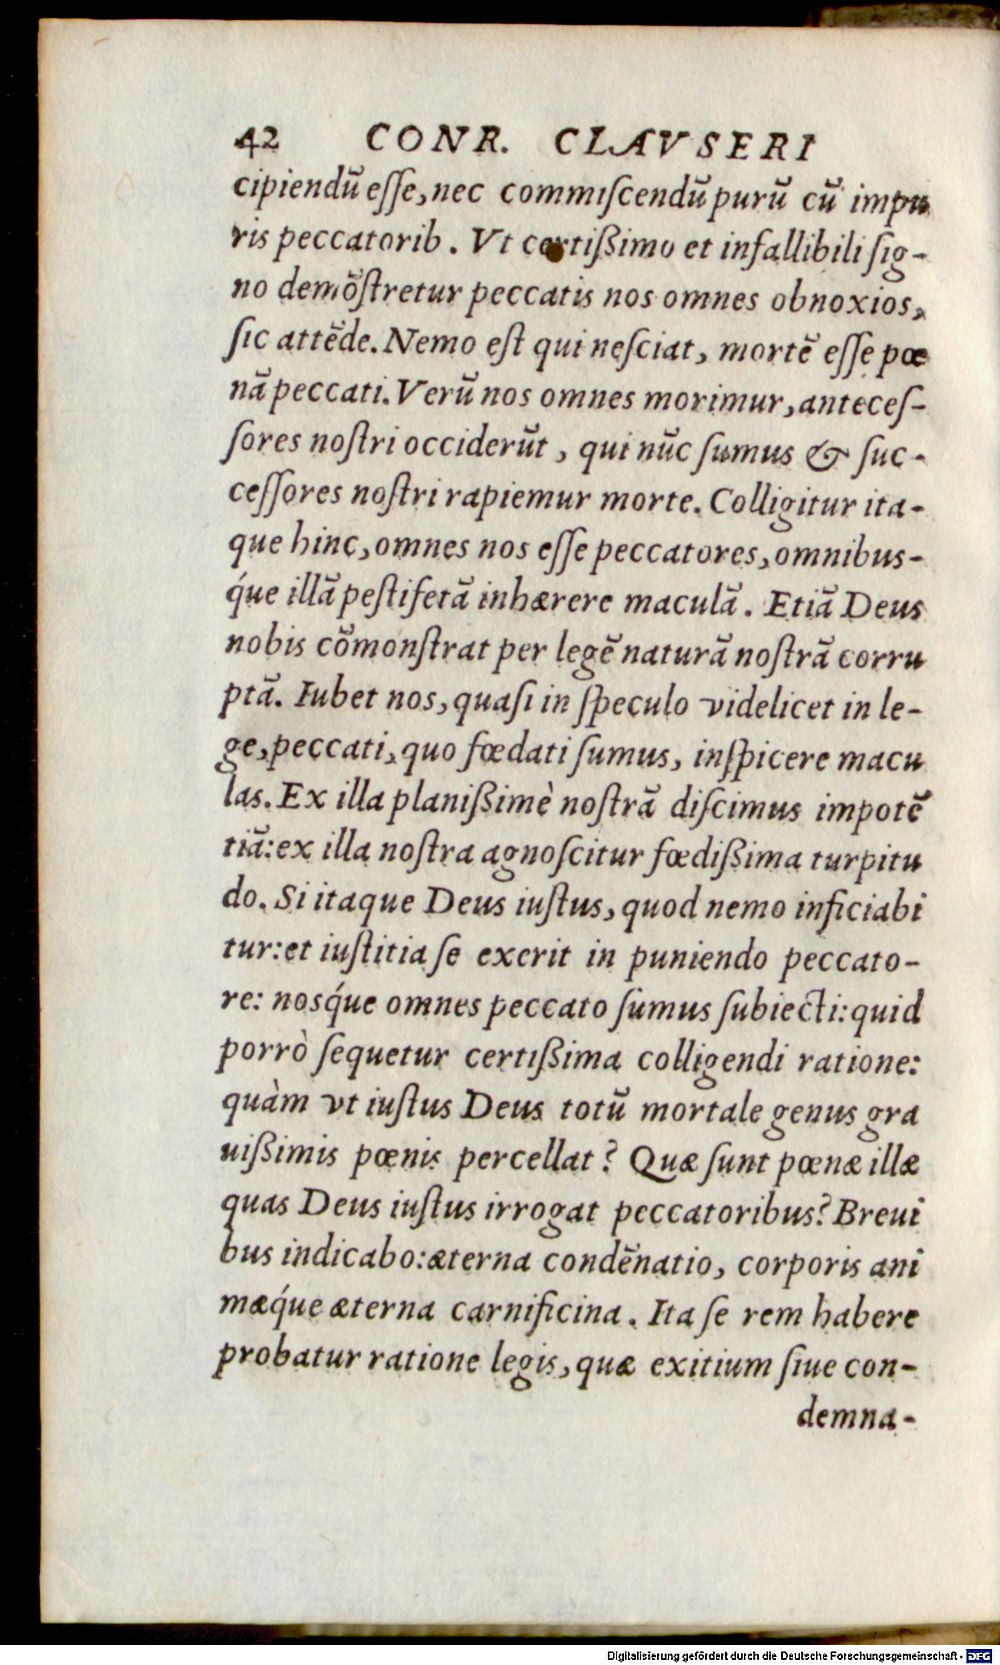 42 CONR. CLAVSERI
cipiendũ eſſe, nec commiſcendũ purũ cũ impu
ris peccatorib. Vt certißimo et infallibili ſig-
no demõſtretur peccatis nos omnes obnoxios,
ſic attẽde. Nemo eſt qui neſciat, mortẽ eſſe pœ
nã peccati. Verũ nos omnes morimur, anteceſ-
ſores noſtri occiderũt, qui nũc ſumus & ſuc-
ceſſores noſtri rapiemur morte. Colligitur ita-
que hinc, omnes nos eſſe peccatores, omnibus-
q́ue illã peſtiferã inhærere maculã. Etiã Deus
nobis cõmonſtrat per legẽ naturã noſtrã corru
ptã. Iubet nos, quaſi in ſpeculo videlicet in le-
ge, peccati, quo fœdati ſumus, inſpicere macu
las. Ex illa planißimè noſtrã diſcimus impotẽ
tiã: ex illa noſtra agnoſcitur fœdißima turpitu
do. Si itaque Deus iuſtus, quod nemo inficiabi
tur: et iuſtitia ſe exerit in puniendo peccato-
re: nosq́ue omnes peccato ſumus ſubiecti: quid
porrò ſequetur certißima colligendi ratione:
quàm vt iuſtus Deus totũ mortale genus gra
uißimis pœnis percellat? Quæ ſunt pœnæ illæ
quas Deus iuſtus irrogat peccatoribus? Breui
bus indicabo: æterna condẽnatio, corporis ani
mæq́ue æterna carnificina. Ita ſe rem habere
probatur ratione legis, quæ exitium ſiue con-
demna-
Digitalisierung gefördert durch die Deutsche Forschungsgemeinschaft - DFG